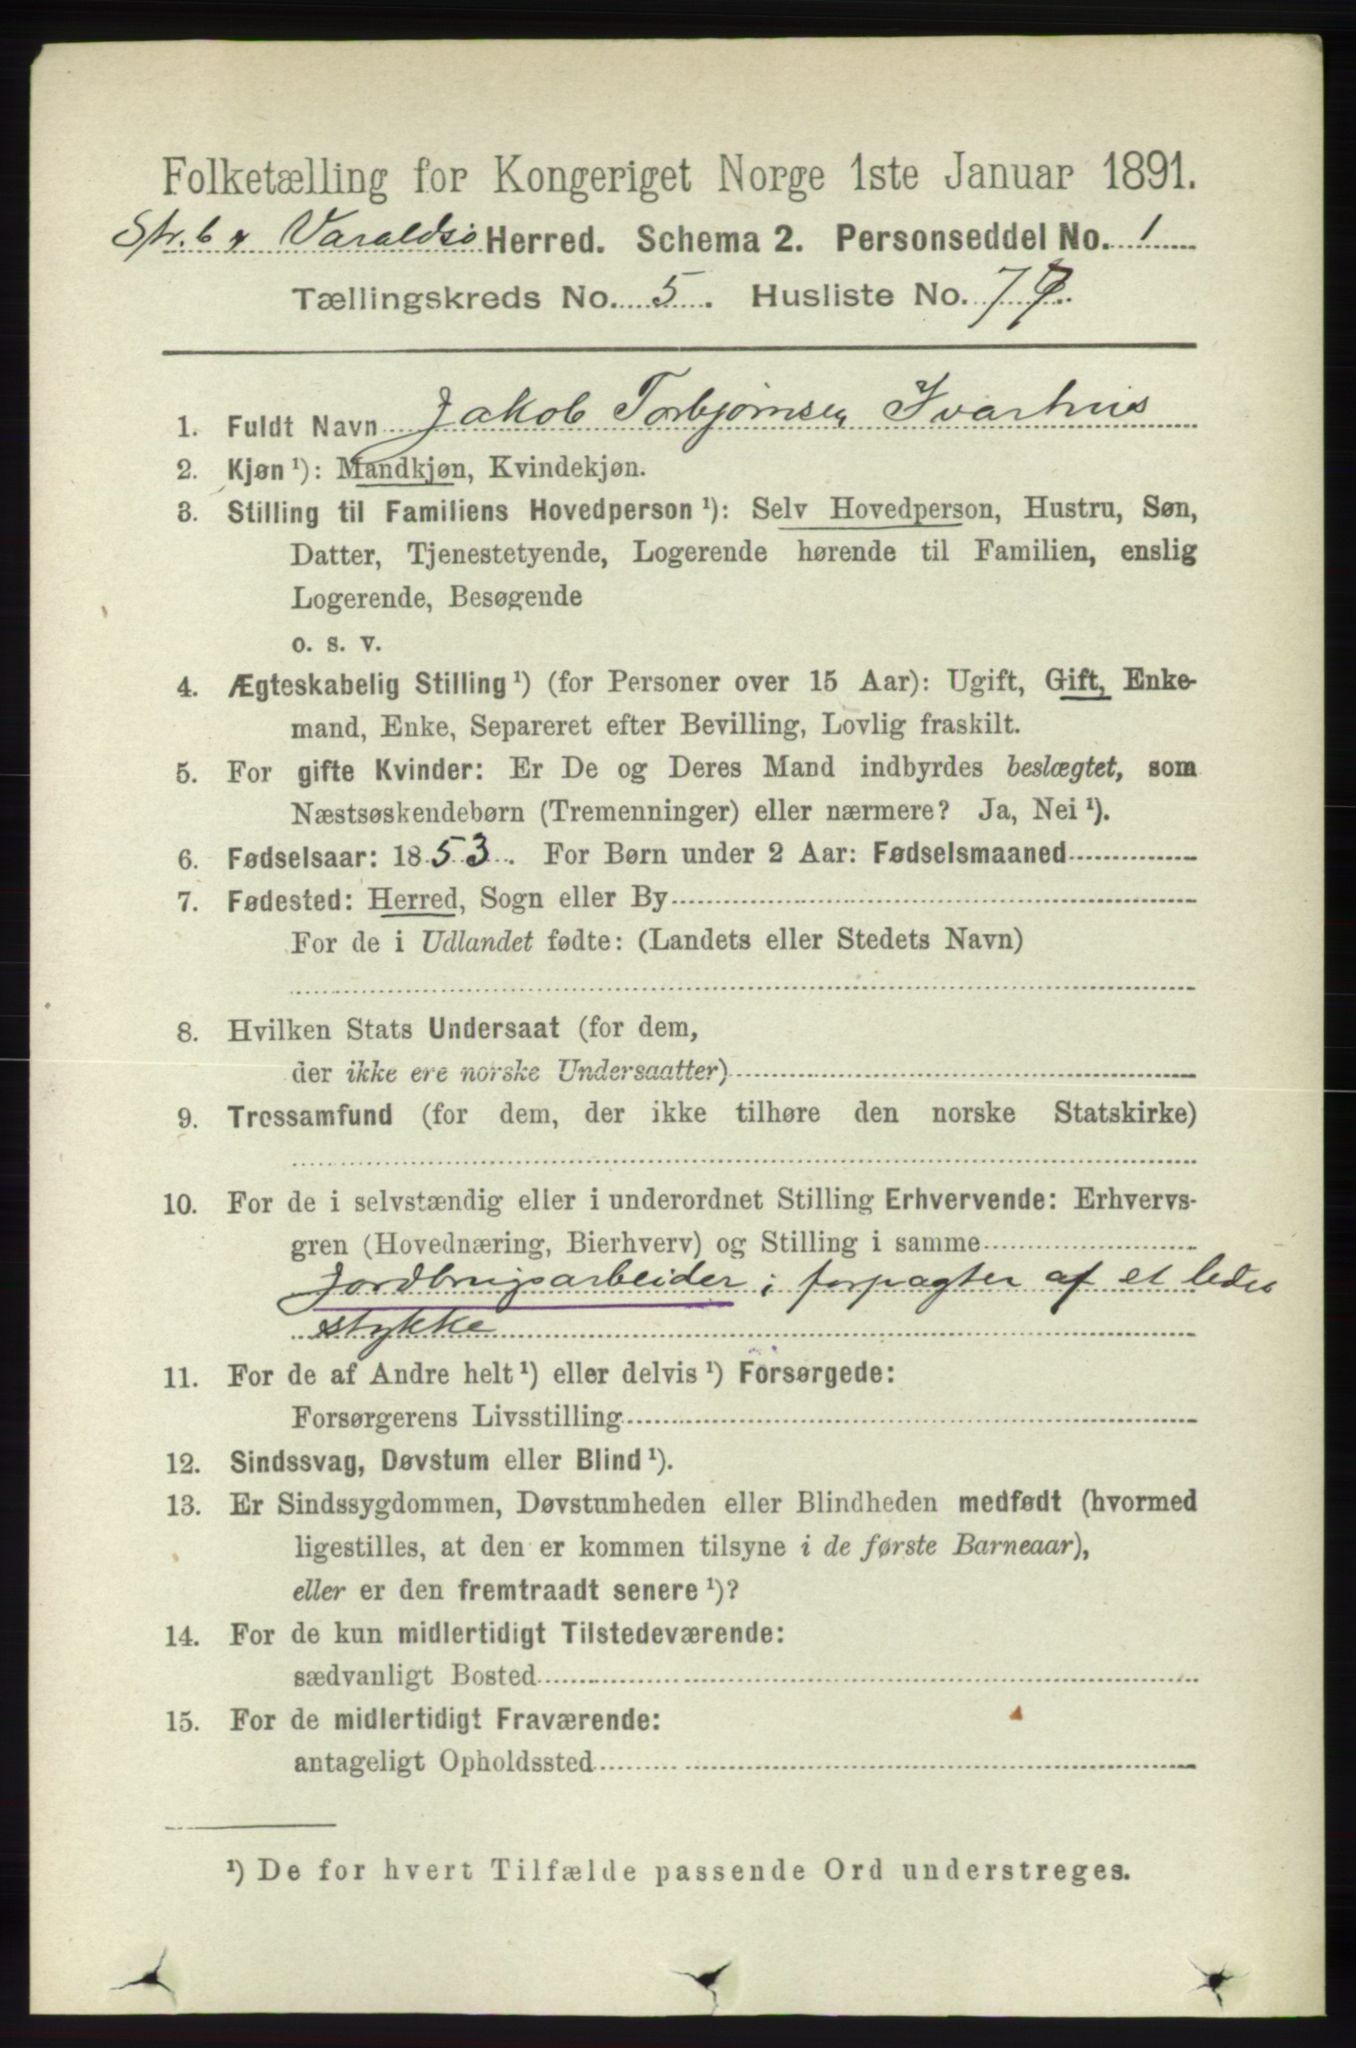 Folketælling for Kongeriget Norge 1ste Januar 1891.
Str.b & Varaldsø Herred. Schema 2. Personseddel No. 1
Tællingskreds No. 5. Husliste No. 7
1. Fuldt Navn Jakob Torbjørnsen Ivarhus
2. Kjøn ¹): Mandkjøn, Kvindekjøn.
3. Stilling til Familiens Hovedperson ¹): Selv Hovedperson, Hustru, Søn,
Datter, Tjenestetyende, Logerende hørende til Familien, enslig
Logerende, Besøgende
o. s. v.
4. Ægteskabelig Stilling ¹) (for Personer over 15 Aar): Ugift, Gift, Enke-
mand, Enke, Separeret efter Bevilling, Lovlig fraskilt.
5. For gifte Kvinder: Er De og Deres Mand indbyrdes beslægtet, som
Næstsøskendebørn (Tremenninger) eller nærmere? Ja, Nei ¹).
6. Fødselsaar: 1853. For Børn under 2 Aar: Fødselsmaaned
7. Fødested: Herred, Sogn eller By
For de i Udlandet fødte: (Landets eller Stedets Navn)
8. Hvilken Stats Undersaat (for dem,
der ikke ere norske Undersaatter)
9. Trossamfund (for dem, der ikke tilhøre den norske Statskirke)
10. For de i selvstændig eller i underordnet Stilling Erhvervende: Erhvervs-
gren (Hovednæring, Bierhverv) og Stilling i samme
Jordbrugsarbeider; forpagter af et lidet
stykke
11. For de af Andre helt ¹) eller delvis ¹) Forsørgede:
Forsørgerens Livsstilling
12. Sindssvag, Døvstum eller Blind ¹).
13. Er Sindssygdommen, Døvstumheden eller Blindheden medfødt (hvormed
ligestilles, at den er kommen tilsyne i de første Barneaar),
eller er den fremtraadt senere ¹)?
14. For de kun midlertidigt Tilstedeværende:
sædvanligt Bosted
15. For de midlertidigt Fraværende:
antageligt Opholdssted
¹) De for hvert Tilfælde passende Ord understreges.